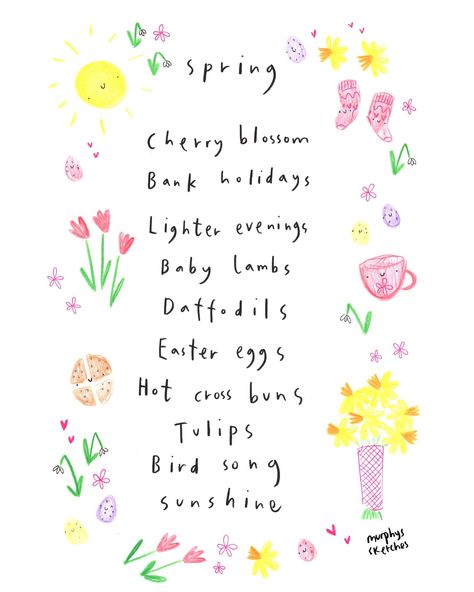 spring
Cherry blossom
Bank holidays
Lighter evenings
Baby lambs
Daffodils
Easter eggs
Hot cross buns
Tulips
Bird song
sunshine
murphys
sketches